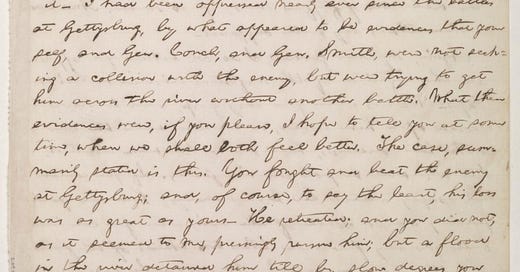 it— I had been oppressed nearly ever since the battles
at Gettysburg, by what appeared to be evidences that your
self, and Gen. Couch, and Gen. Smith, were not seek-
ing a collision with the enemy, but were trying to get
him across the river without another battle. What these
evidences were, if you please, I hope to tell you at some
time, when we shall both feel better. The case, sum-
marily stated is this. You fought and beat the enemy
at Gettysburg; and, of course, to say the least, his loss
was as great as yours— He retreated; and you did not,
as it seemed to me, pressingly pursue him; but a flood
in the river detained him, till, by slow degrees, you